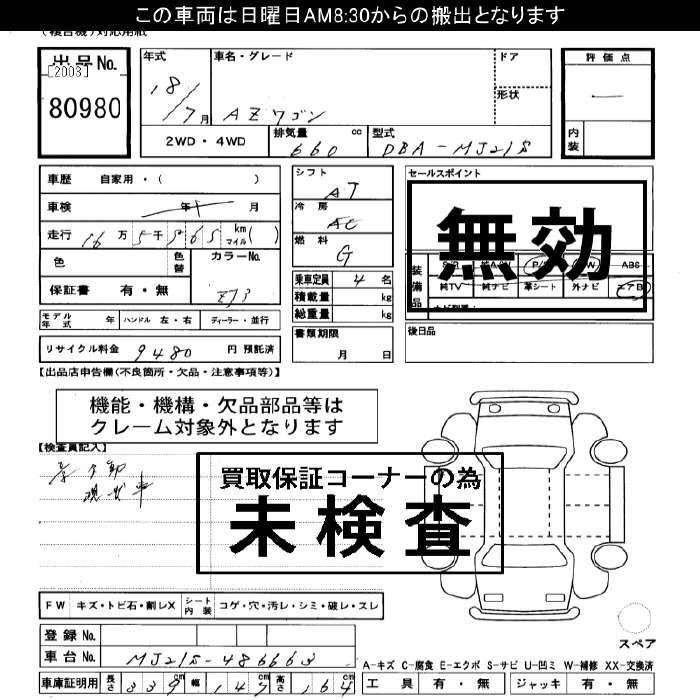 この車両は日曜日AM8:30からの搬出となります
(複合機)対応用紙
出品No.
[2003]
80980
年式
18/7月
車名・グレード
AZワゴン
ドア
形状
評価点
内装
2WD・4WD
排気量 660 cc
型式 DBA-MJ21S
車歴 自家用・( )
車検 年 月
走行 16万5千565 km マイル( )
色
色替
カラーNo.
ZJ3
保証書 有・無
シフト AT
冷房 AC
燃料 G
乗車定員 4名
積載量 kg
総重量 kg
セールスポイント
無効
装備品
ABS
純TV
純ナビ
革シート
外ナビ
エアB
モデル年式 年
ハンドル 左・右
ディーラー・並行
書類期限
月 日
後日品
リサイクル料金 9480 円 預託済
【出品店申告欄(不良箇所・欠品・注意事項等)】
機能・機構・欠品部品等は
クレーム対象外となります
【検査員記入】
買取保証コーナーの為
未検査
現状車
FW キズ・トビ石・割レX
シート内装 コゲ・穴・汚レ・シミ・破レ・スレ
登録No.
車台No. MJ21S-486663
車庫証明用 長さ 339cm 幅 147cm 高さ 164cm
スペア
A-キズ C-腐食 E-エクボ S-サビ U-凹ミ W-補修 XX-交換済
工具 有・無
ジャッキ 有・無